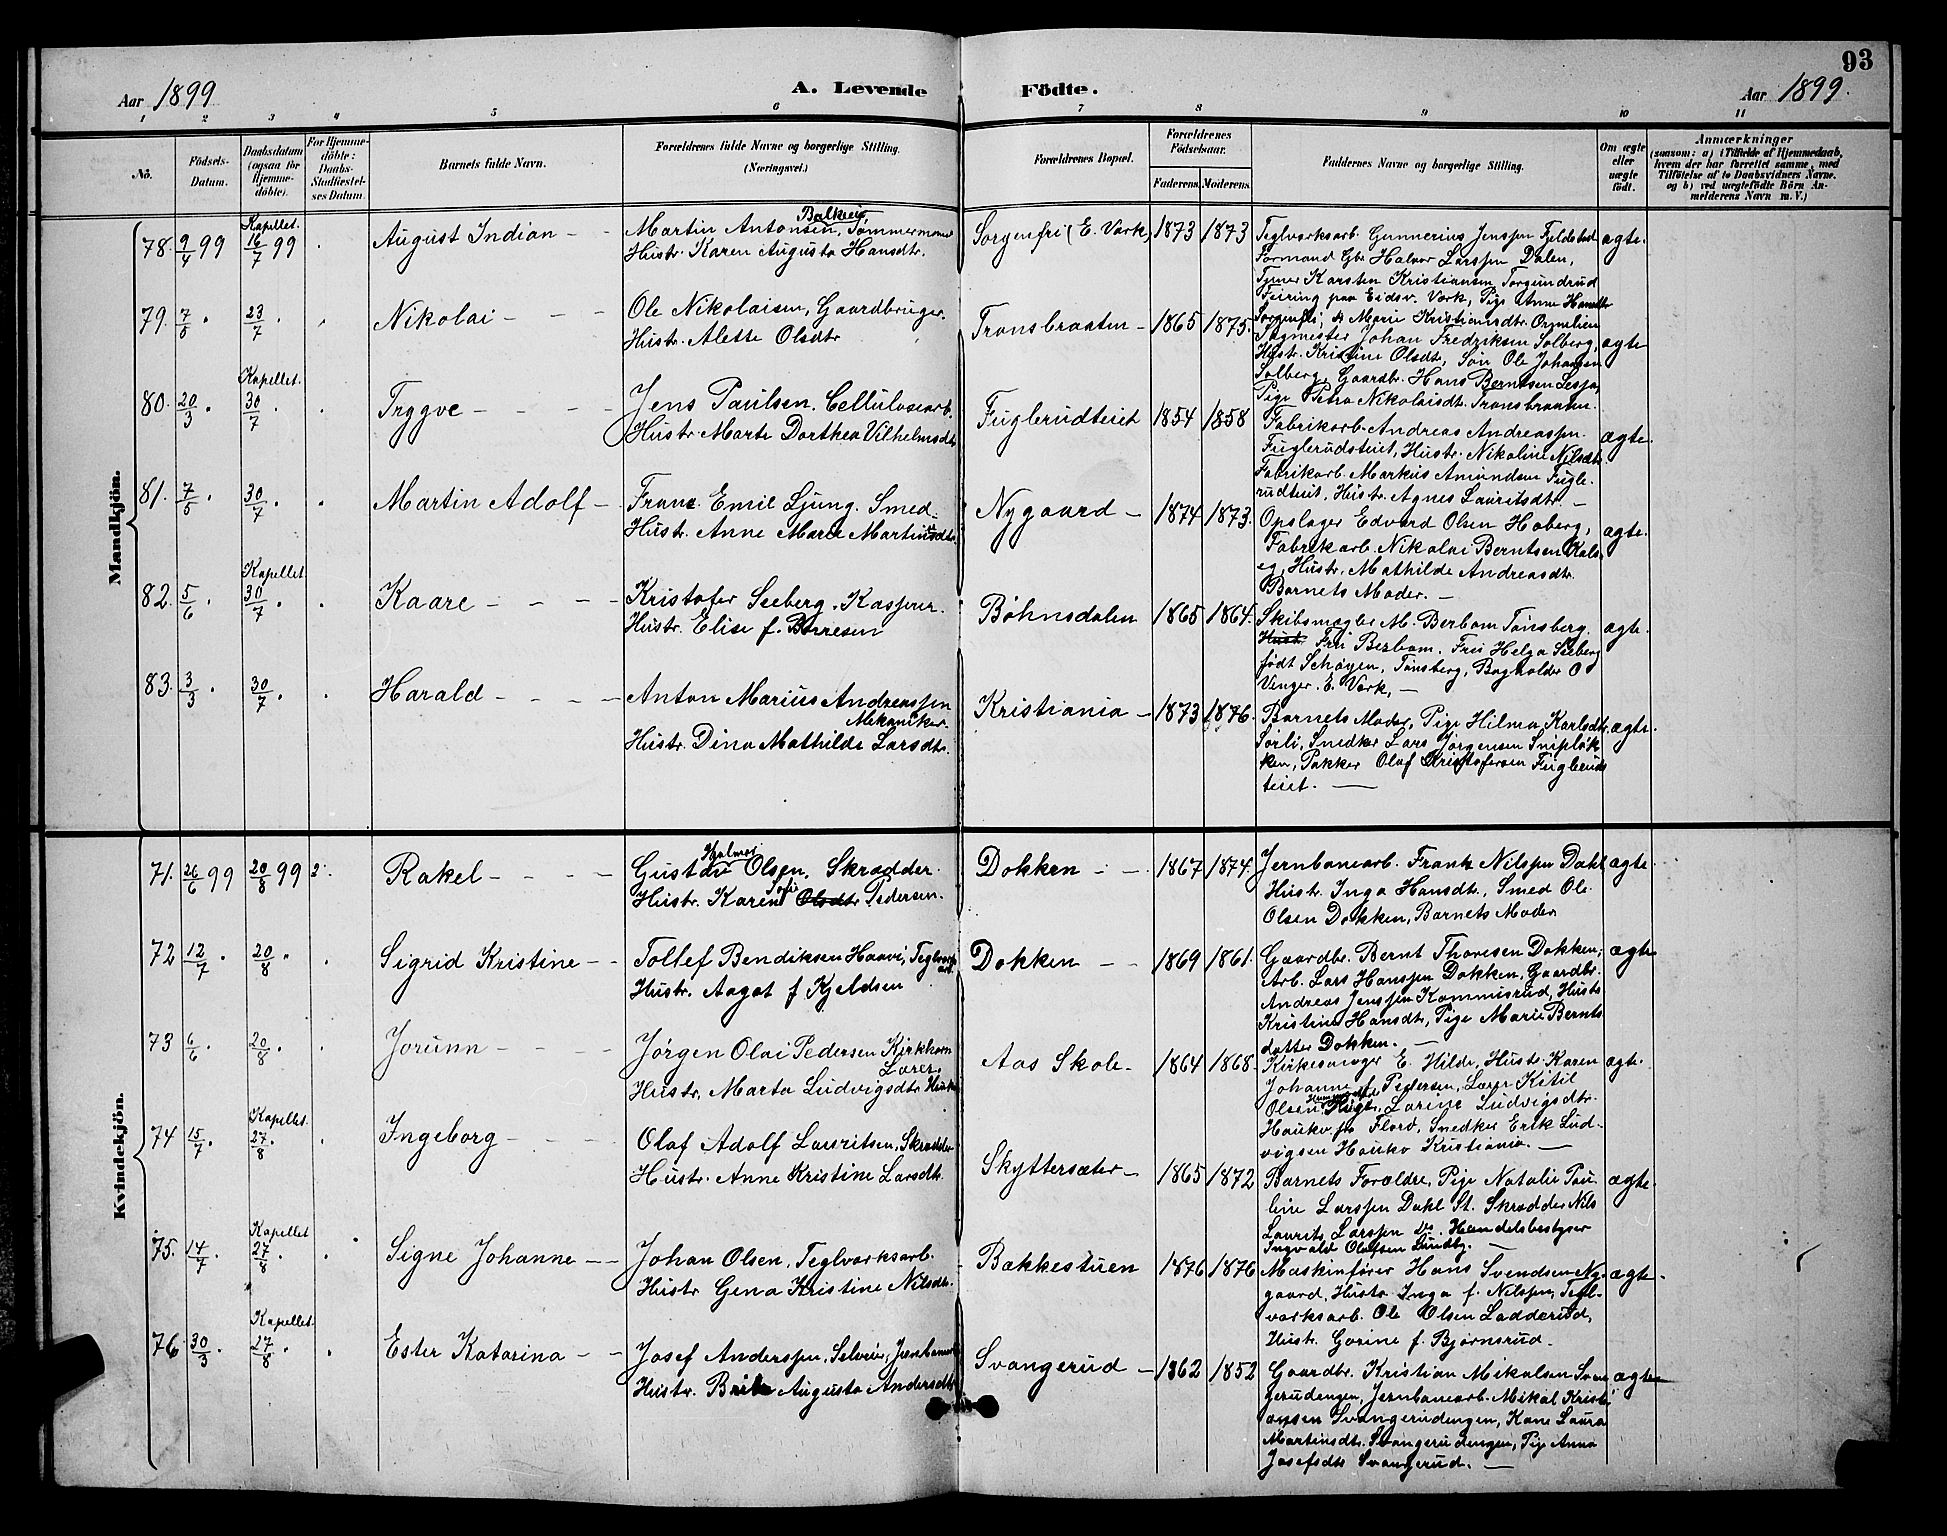 93
Aar 1899
A. Levende Födte.
Aar 1899.
1 2 3 4 5 6 7 8 9 10 11
No.
Födsels-
Datum.
Daabsdatum
(ogsaa for
Hjemme-
döbte).
For Hjemme-
döbte:
Daabs-
Stadfæstel-
ses Datum.
Barnets fulde Navn.
Forældrenes fulde Navne og borgerlige Stilling.
(Næringsvei.)
Forældrenes Bopæl.
Forældrenes
Födselsaar.
Faderens. Moderens.
Faddernes Navne og borgerlige Stilling.
Om ægte
eller
uægte
født.
Anmærkninger
(saasom: a) i Tilfælde af Hjemmedaab,
hvem der har forrettet samme, med
Tilföielse af to Daabsvidners Navne.
og b) ved uægtefödte Börn An-
melderens Navn m. V.)
Mandkjön.
78. 9/4 99 Kapellet. 16/7 99 August Indian
Martin Antonsen, Tømmermand
Hustr. Karen Augusta Hansdtr.
Sorgenfri (E. Værk) 1873 1873
Teglværksarb. Gunnerius Jenssen Fjeldstad
Formand Gbr. Halvor Larssen Dalen,
Tjener Karsten Kristiansen Torgundrud
Feiring paa Eidsv. Værk, Pige Anne Hansdtr
Sorgenfri, Marie Kristiansdtr.
ægte.
79. 7/5 23/7 Nikolai
Ole Nikolaisen, Gaardbruger.
Hustr. Alette Olsdtr
Transbraaten 1865 1875.
Sagmester Johan Fredriksen Solberg,
Hustr. Kristine Olsdtr, Søn Ole Johansen
Solberg, Gaardbr. Hans Berntsen
Pige Petra Nikolaisdtr. Transbraaten.
ægte
80. 20/3 Kapellet. 30/7 Tryggve
Jens Paulsen. Cellulosearb.
Hustr. Marte Dorthea Vilhelmsdtr
Fuglerudteiet 1854 1858
Fabrikarb. Andreas Andreassen
Fuglerudsteiet, Hustr. Nikoline Nilsdtr.
Fabrikarb. Markus Amundsen Fugle-
rudteiet, Hustr. Agnes Lauritsdtr.
ægte.
81. 7/5 30/7 Martin Adolf
Franz Emil Ljung. Smed.
Hustr. Anne Marie Martinsdtr.
Nygaard 1874 1873.
Opslager Edvard Olsen Hoberg,
Fabrikarb. Nikolai Berntsen
Hustr. Mathilde Andreasdtr.
Barnets Moder.
ægte.
82. 5/6 Kapellet 30/7 Kaare
Kristofer Seeberg, Kasserer.
Hustr. Elise f. Borresen
Bøhnsdalen 1865 1864.
Skibsmægler M. Berbom Tønsberg.
Fru Berbom. Fru Helga Seeberg
født Schøyen, Tønsberg, Bogholder O
Vinger. E. Værk,
ægte.
83. 3/3 30/7 Harald
Anton Marius Andreassen
Mekaniker.
Hustr. Dina Mathilde Larsdtr.
Kristiania 1873 1876.
Barnets Moder, Pige Hilma Karlsdtr.
Sørli, Snedker Lars Jørgensen Snipløk-
ken, Pakker Olaf Kristofersen Fuglerud-
teiet.
ægte.
Kvindekjön.
71. 26/6 99 20/8 99 Rakel
Gustav Hjalmar Olsen, Skrædder.
Hustr. Karen Sofie Pedersen.
Dokken 1867 1874.
Jernbanearb. Frantz Nilssen Dahl
Hustr. Inga Hansdtr, Smed Ole
Olsen Dokken, Barnets Moder
ægte.
72 12/7 20/8 Sigrid Kristine
Tollef Bendiksen Haavi, Teglværksarb.
Hustr. Aagot f Kjeldsen
Dokken 1869 1861.
Gaardbr. Bernt Thoresen Dokken,
Arb. Lars Hanssen Dokken, Gaardbr.
Andreas Jenssen Kommisrud, Hustr
Kristine Hansdtr, Pige Marie Bernts-
datter Dokken.
ægte
73 6/6 20/8 Jorunn
Jørgen Olai Pedersen Kirkhorn
Lærer
Hustr. Marta Ludvigsdtr
Aas Skole 1864 1868.
Kirkesanger E. Hilde, Hustr. Karen
Johanne f. Pedersen, Lærer Kitil
Olsen, Larine Ludvigsdtr.
Hauko fra Florø, Snedker Erik Lud-
vigsen Hauko Kristiania.
ægte.
74 15/7 Kapellet. 27/8 Ingeborg
Olaf Adolf Lauritsen, Skrædder
Hustr. Anne Kristine Larsdtr.
Skyttersæter 1865 1872
Barnets Forældre, Pige Natalie Pau-
line Larssen Dahl St. Skrædder Nils
Laurits Larssen Do. Handelsbestyrer
Ingvald Olafsen Lundby.
ægte.
75. 14/7 Kapellet 27/8 Signe Johanne
Johan Olsen, Teglværksarb.
Hustr Gena Kristine Nilsdtr.
Bakkestuen 1876 1876
Maskinfører Hans Svendsen Ny-
gaard, Hustr Inga f. Nilssen, Tegl-
værksarb. Ole Olsen Ladderud,
Hustr. Gorine f. Bjørnsrud.
ægte.
76 30/3 Kapellet. 27/8 Ester Katarina
Josef Anderssen, Selveier, Jernbanearb
Hustr. Brita Augusta Andersdtr
Svangerud 1862 1852
Gaardbr. Kristian Mikalsen Svan-
gerudengen, Jernbanearb. Mikal Kristi-
ansen Svangerudengen, Kone Laura
Martinsdtr. Svangerudengen, Pige Anna
Josefsdtr Svangerud.
ægte